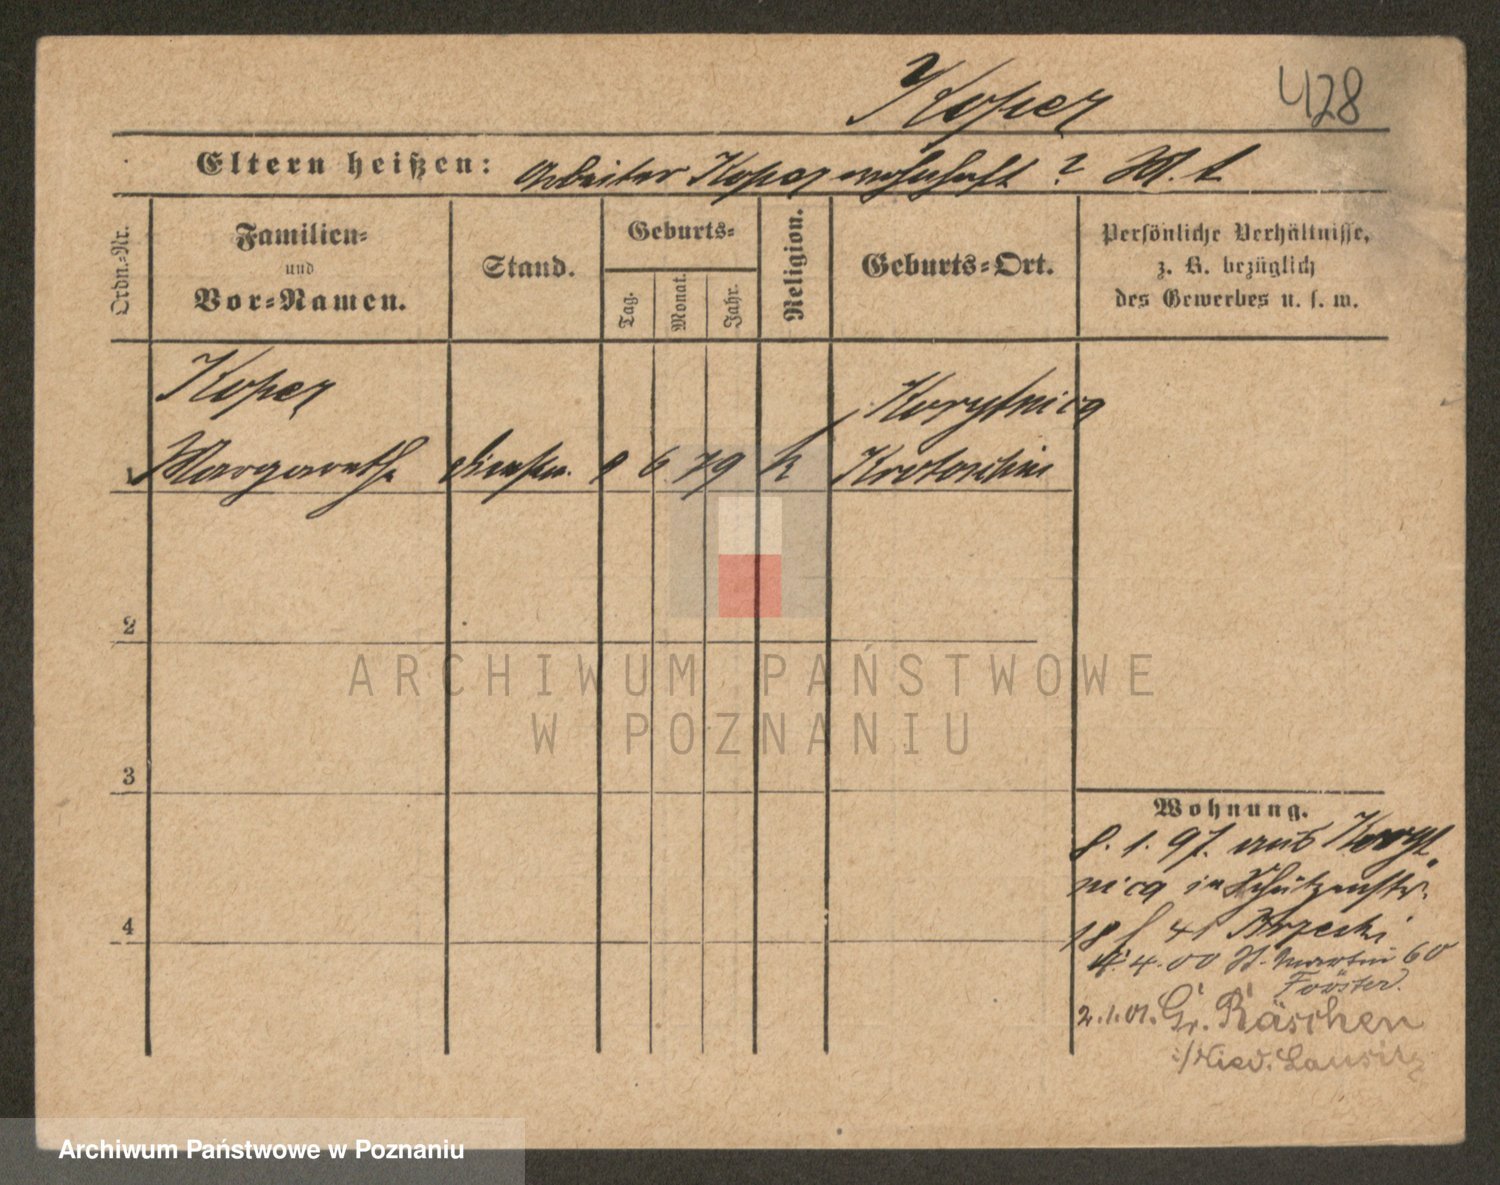 Koper
428
Eltern heißen: Arbeiter Koper wohnhaft ?
Ordn.-Nr.
Familien-
und
Vor-Namen.
Stand.
Geburts-
Tag.
Monat.
Jahr.
Religion.
Geburts-Ort.
Persönliche Verhältnisse,
z. B. bezüglich
des Gewerbes u. s. w.
Koper
Margarethe
8 6 79 k
Korytnica
Krotoschin
2
3
4
Wohnung.
8. 1. 97. aus Koryt
nica in Schützenstr.
18 f 41 Krzecki
4. 4. 00 St. Martin 60
Förster.
2.1.01. Gr. Räschen
i/Nied. Lausitz
ARCHIWUM PAŃSTWOWE
W POZNANIU
Archiwum Państwowe w Poznaniu